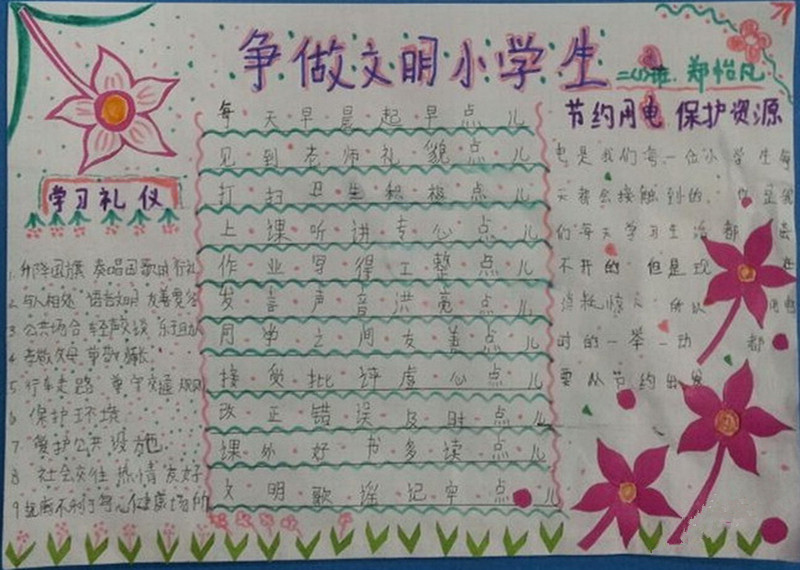 争做文明小学生
二(1)班 郑怡凡
学习礼仪
1 升降国旗 奏唱国歌时行礼
2 与人相处 语言文明 友善宽容
3 公共场合 轻声交谈
4 孝敬父母 尊敬师长
5 行车走路 遵守交通规则
6 保护环境
7 爱护公共设施
8 社会交往 热情友好
9
每天早晨起早点儿
见到老师礼貌点儿
打扫卫生积极点儿
上课听讲专心点儿
作业写得工整点儿
发言声音洪亮点儿
同学之间友善点儿
接受批评虚心点儿
改正错误及时点儿
课外好书多读点儿
文明歌谣记牢点儿
节约用电 保护资源
电是我们每一位小学生每
天都会接触到的。也是我
们每天学习生活都 离
不开的 但是现 在
消耗惊人 所以 用电
时的一举一动 都
要从节约出发